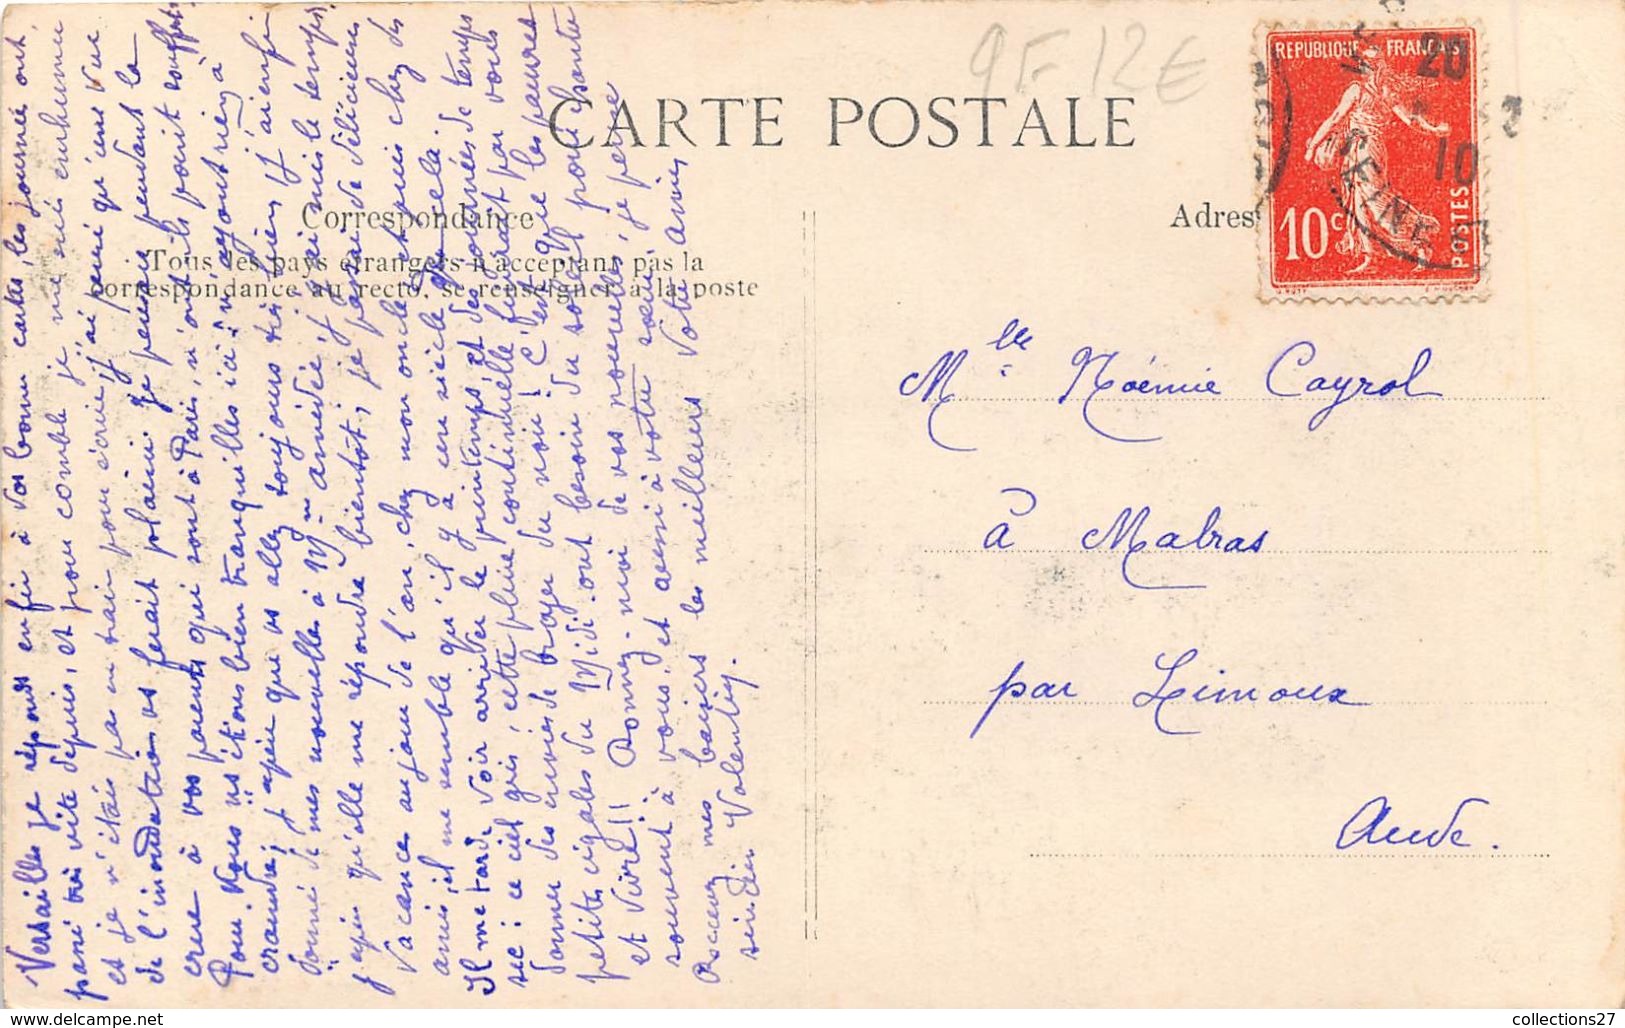 9F 12€
CARTE POSTALE
Correspondance
Tous les pays étrangers n'acceptant pas la
correspondance au recto, se renseigner à la poste
Adres
REPUBLIQUE FRANÇAISE
10c
POSTES
20
10
SEINE
Mlle Noémie Cayrol
à Malras
par Limoux
Aude.
Versailles je réponds enfin à vos bonnes cartes, les journées ont
passé très vite depuis, et pour comble je me suis enrhumée
et je n'étais pas en train pour écrire j'ai pensé qu'une vue
de l'inondation vs ferait plaisir je pensais pendant la
crue à vos parents qui sont à Paris, n'ont-ils point souffert
Pour nous ns étions bien tranquilles ici n'ayant rien à
craindre; j'espère que vs allez toujours très bien, j'ai enfin
donné de mes nouvelles à Mme Amédée, j'y ai mis le temps
j'espère qu'elle me répondra bientôt; je passai de délicieuses
vacances au jour de l'an, chez mon oncle et puis chez des
amis, il me semble qu'il y a un siècle de cela.
Il me tarde voir arriver le printemps et des journées de temps
sec: ce ciel gris, cette pluie continuelle finirait par vous
donner des envies de broyer du noir! C'est que les pauvres
petites cigales du Midi ont besoin du soleil pour chanter
et vivre!! Donnez-moi de vos nouvelles, je pense
souvent à vous, et aussi à votre sœur aînée
Recevez mes baisers les meilleurs Votre amie
Valentin
collections27